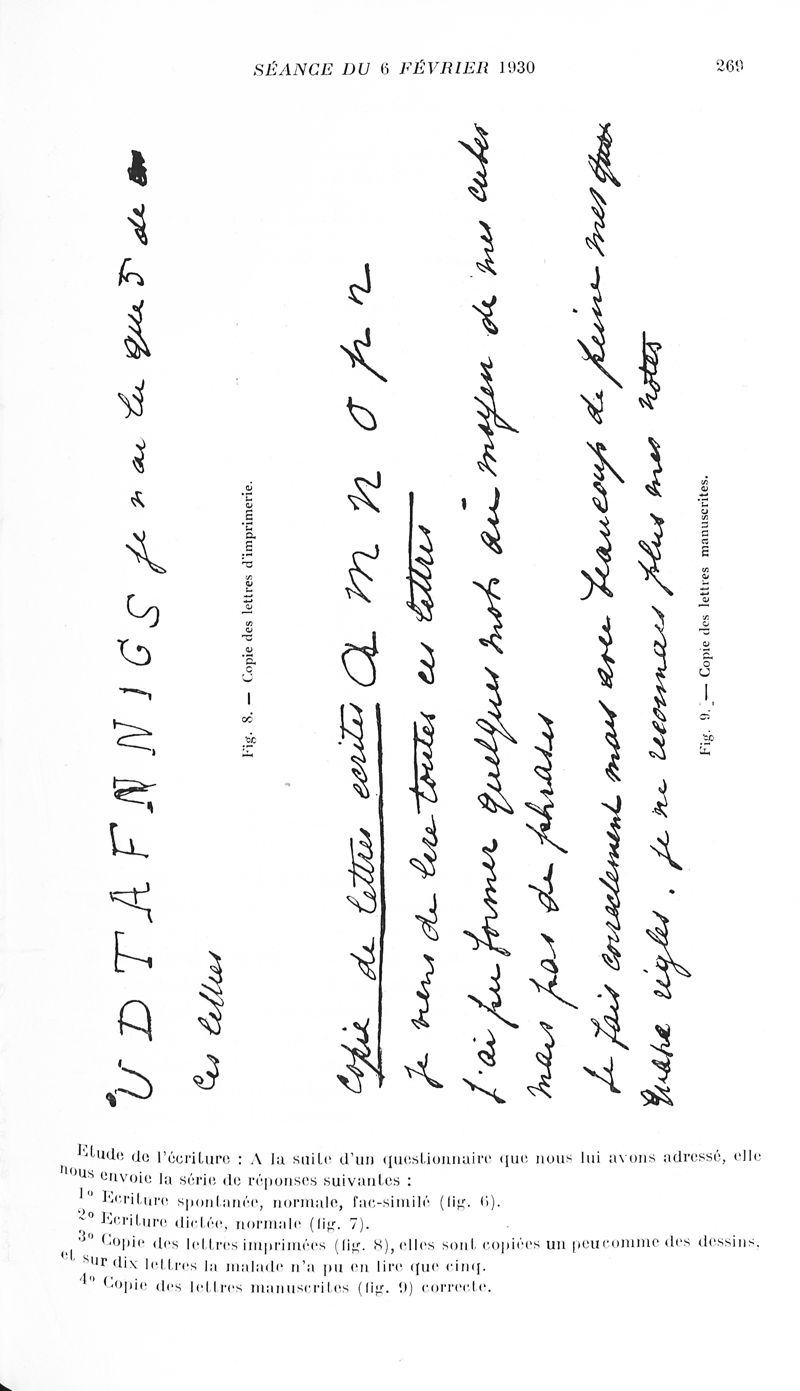 SÉANCE DU 6 FÉVRIER 1930 269
V D T A F N N I G S je n ai lu que 5 de
ces lettres
Fig. 8. — Copie des lettres d'imprimerie.
Copie de lettres ecrites a m n o p r
Je viens de lire toutes ces lettres
J'ai pu former quelques mots au moyen de mes cubes
mais pas de phrases
Je fais correctement mais avec beaucoup de peine mes
quatre règles. Je ne reconnais plus mes notes
Fig. 9. — Copie des lettres manuscrites.
Etude de l'écriture : A la suite d'un questionnaire que nous lui avons adressé, elle
nous envoie la série de réponses suivantes :
1º Ecriture spontanée, normale, fac-similé (fig. 6).
2º Ecriture dictée, normale (fig. 7).
3º Copie des lettres imprimées (fig. 8), elles sont copiées un peu comme des dessins,
et sur dix lettres la malade n'a pu en lire que cinq.
4º Copie des lettres manuscrites (fig. 9) correcte.